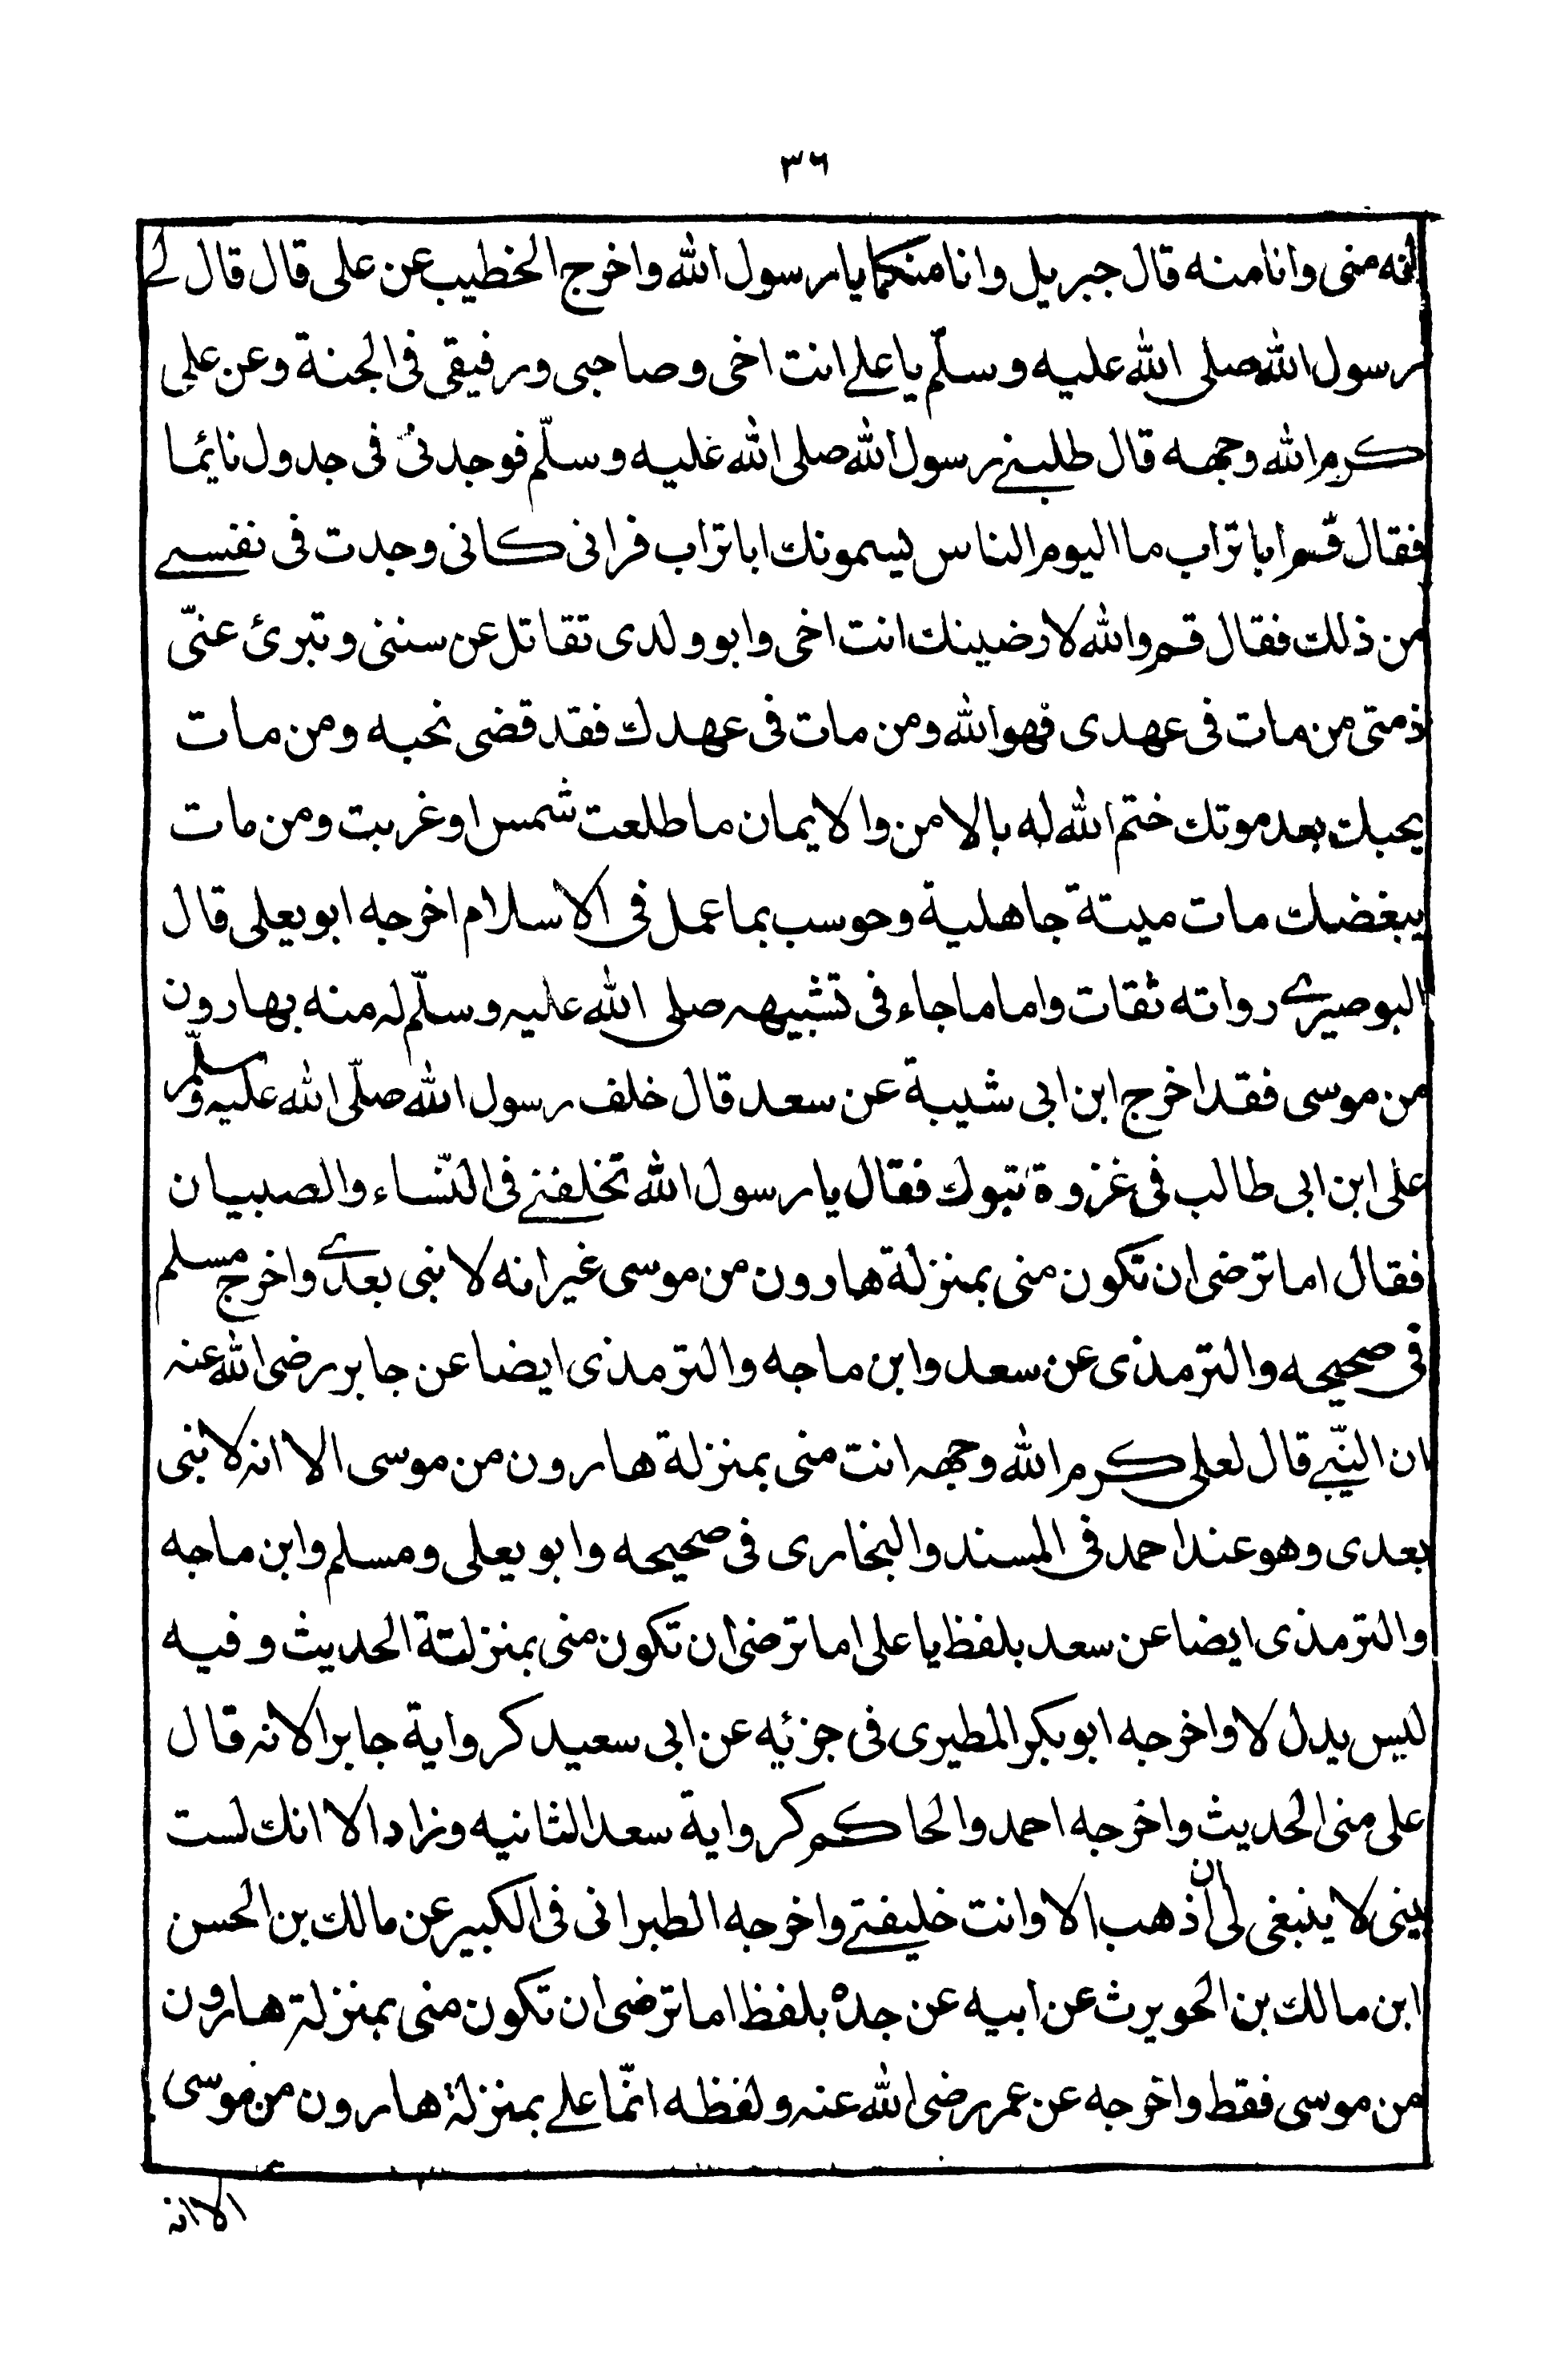 ٣٦
انه منى وانا منه قال جبريل وانا منكما يا رسول الله واخرج الخطيب عن على قال قال لے
رسول الله صلى الله عليه وسلّم يا علے انت اخى وصاحبى ورفيقى فى الجنة وعن على
كرم الله وجهه قال طلبنے رسول الله صلى الله عليه وسلّم فوجدنى فى جدول نائما
فقال قم ابا تراب ما اليوم الناس يسمونك ابا تراب فرانى كانى وجدت فى نفسے
من ذلك فقال قم والله لارضينك انت اخى وابو ولدى تقاتل عن سنتى وتبرئ عنّى
ذمتى من مات فى عهدى فهو الله ومن مات فى عهدك فقد قضى نحبه ومن مات
يحبك بعد موتك ختم الله له بالامن والايمان ما طلعت شمس او غربت ومن مات
يبغضك مات ميتة جاهلية وحوسب بما عمل فى الاسلام اخرجه ابو يعلى قال
البوصيرے رواته ثقات واما ما جاء فى تشبيهه صلى الله عليه وسلّم له منه بهارون
من موسى فقد اخرج ابن ابى شيبة عن سعد قال خلف رسول الله صلّى الله عليه وسلّم
على ابن ابى طالب فى غزوة تبوك فقال يا رسول الله تخلفنے فى النّساء والصبيان
فقال اما ترضى ان تكون منى بمنزلة هارون من موسى غير انه لا نبى بعدے واخرج مسلم
فى صحيحه والترمذى عن سعد وابن ماجه والترمذى ايضا عن جابر رضى الله عنه
ان النبّے قال لعلى كرم الله وجهه انت منى بمنزلة هارون من موسى الا انه لا نبى
بعدى وهو عند احمد فى المسند والبخارى فى صحيحه وابو يعلى ومسلم وابن ماجه
والترمذى ايضا عن سعد بلفظ يا على اما ترضى ان تكون منى بمنزلتة الحديث وفيه
ليس بدل لا واخرجه ابو بكر المطيرى فى جزئه عن ابى سعيد كرواية جابر الا انه قال
على منى الحديث واخرجه احمد والحاكم كرواية سعد الثانيه وزاد الا انك لست
بنبى لا ينبغى لى ان اذهب الا وانت خليفتے واخرجه الطبرانى فى الكبير عن مالك بن الحسن
ابن مالك بن الحويرث عن ابيه عن جده بلفظ اما ترضى ان تكون منى بمنزلة هارون
من موسى فقط واخرجه عن عمر رضى الله عنه ولفظه انّما علے بمنزلة هارون من موسى
الا انه